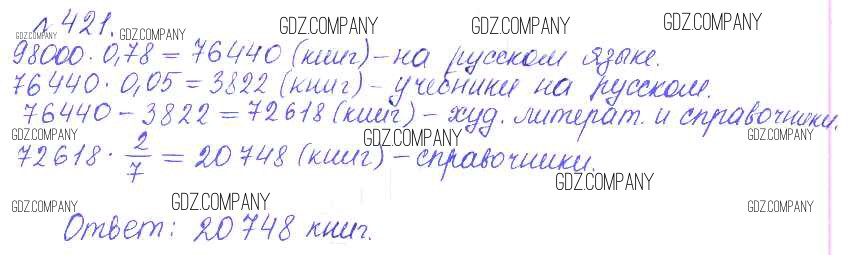 № 421. GDZ.COMPANY GDZ.COMPANY
GDZ.COMPANY GDZ.COMPANY
98000 · 0,78 = 76440 (книг) – на русском языке.
76440 · 0,05 = 3822 (книг) – учебники на русском.
76440 – 3822 = 72618 (книг) – худ. литерат. и справочники.
GDZ.COMPANY GDZ.COMPANY GDZ.COMPANY
72618 · 2/7 = 20748 (книг) – справочники.
GDZ.COMPANY
GDZ.COMPANY GDZ.COMPANY GDZ.COMPANY
Ответ: 20748 книг.